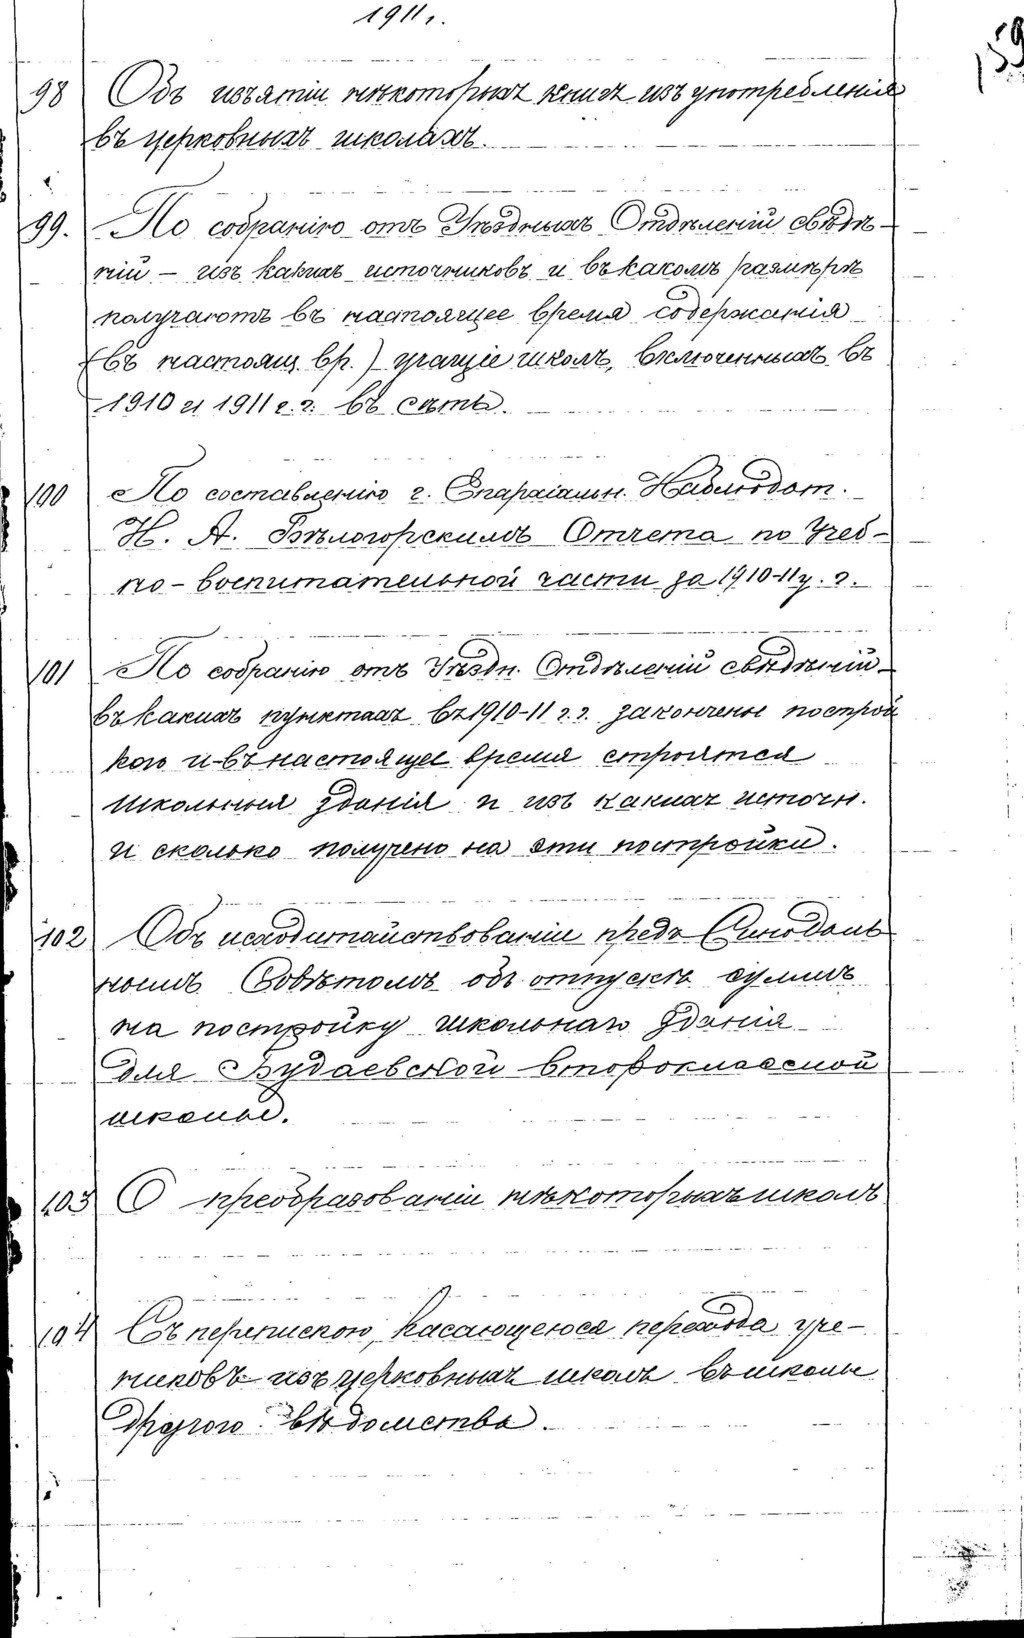 1911 г.
159
98 Объ изъятіи нѣкоторыхъ книгъ изъ употребленія
въ церковныхъ школахъ.
99. По собранію отъ Уѣздныхъ Отдѣленій свѣдѣ-
ній – изъ какихъ источниковъ и въ какомъ размѣрѣ
получаютъ въ настоящее время содержанія
(въ настоящ. вр.) учащіе школъ, включенныхъ въ
1910 и 1911 г.г. въ сѣть.
100 По составленію г. Епархіальн. Наблюдат.
Н. А. Бѣлогорскимъ Отчета по Учеб-
но-воспитательной части за 1910-11 у. г.
101 По собранію отъ Уѣздн. Отдѣленій свѣдѣній
въ какихъ пунктахъ въ 1910-11 г.г. закончены построй
кою и въ настоящее время строятся
школьныя зданія и изъ какихъ источн.
и сколько получено на эти постройки.
102 Объ исходатайствованіи предъ Синодаль
нымъ Совѣтомъ объ отпускѣ суммъ
на постройку школьнаго зданія
для Будаевской второклассной
школы.
103 О преобразованіи нѣкоторыхъ школъ
104 Съ перепискою, касающеюся перехода уче-
никовъ изъ церковныхъ школъ въ школы
другого вѣдомства.